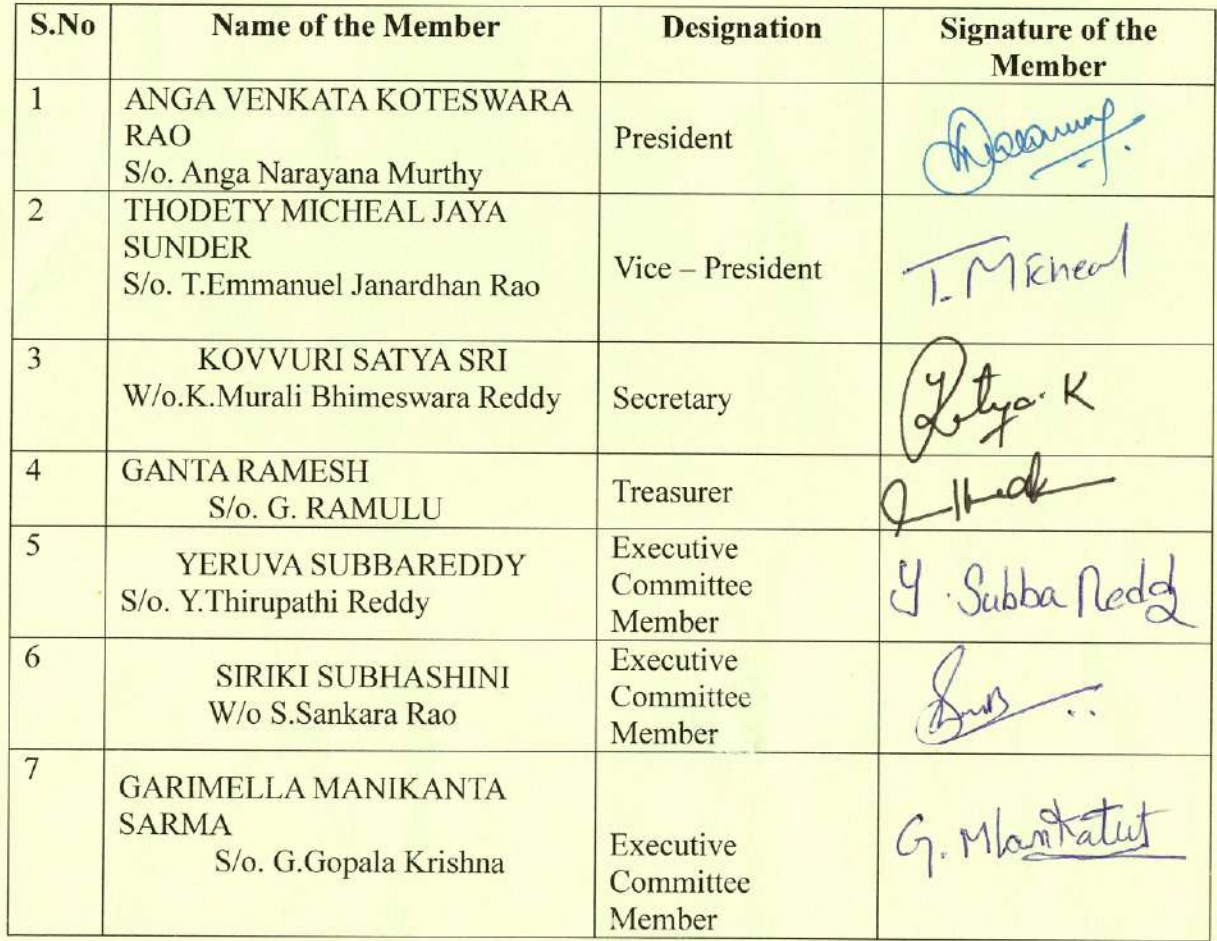 S.No Name of the Member Designation Signature of the
Member
1 ANGA VENKATA KOTESWARA
RAO
S/o. Anga Narayana Murthy
President
2 THODETY MICHEAL JAYA
SUNDER
S/o. T.Emmanuel Janardhan Rao
Vice – President
T. Micheal
3 KOVVURI SATYA SRI
W/o.K.Murali Bhimeswara Reddy
Secretary
Satya. K
4 GANTA RAMESH
S/o. G. RAMULU
Treasurer
5 YERUVA SUBBAREDDY
S/o. Y.Thirupathi Reddy
Executive
Committee
Member
Y. Subba Reddy
6 SIRIKI SUBHASHINI
W/o S.Sankara Rao
Executive
Committee
Member
7 GARIMELLA MANIKANTA
SARMA
S/o. G.Gopala Krishna
Executive
Committee
Member
G.